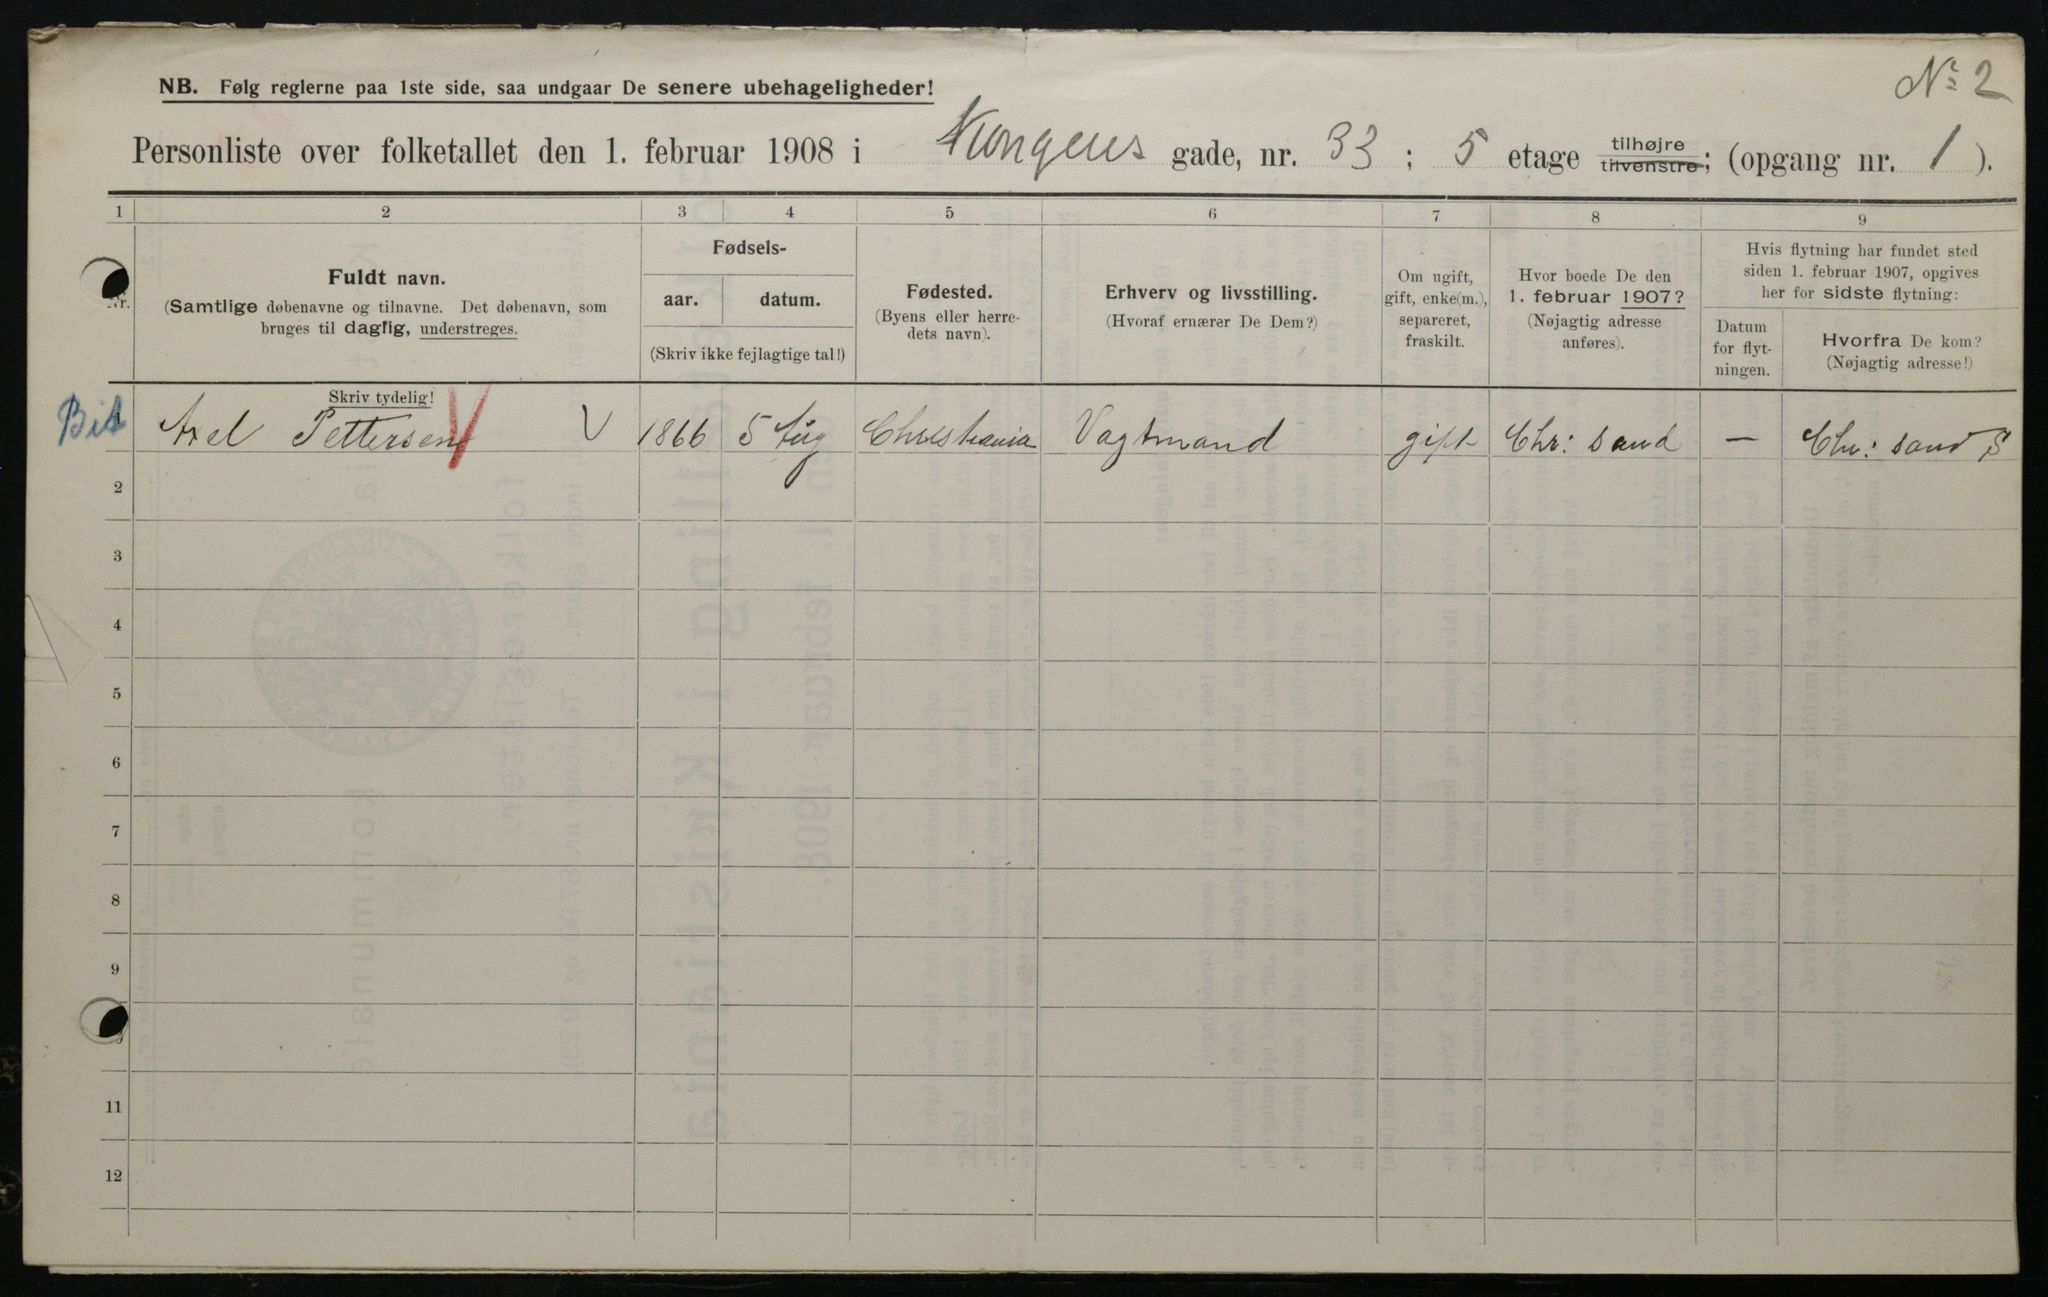 Nº 2
NB. Følg reglerne paa 1ste side, saa undgaar De senere ubehageligheder!
Personliste over folketallet den 1. februar 1908 i Kongens gade, nr. 33 ; 5 etage tilhøjre tilvenstre; (opgang nr. 1 ).
1 2 3 4 5 6 7 8 9
Nr.
Fuldt navn.
(Samtlige døbenavne og tilnavne. Det døbenavn, som
bruges til daglig, understreges.
Skriv tydelig!
Fødsels-
aar. datum.
(Skriv ikke fejlagtige tal!)
Fødested.
(Byens eller herre-
dets navn).
Erhverv og livsstilling.
(Hvoraf ernærer De Dem?)
Om ugift,
gift, enke(m.),
separeret,
fraskilt.
Hvor boede De den
1. februar 1907?
(Nøjagtig adresse
anføres).
Hvis flytning har fundet sted
siden 1. februar 1907, opgives
her for sidste flytning:
Datum
for flyt-
ningen.
Hvorfra De kom?
(Nøjagtig adresse!)
Axel Pettersen V 1866 5 Aug Christiania Vagtmand gift Chr: sand — Chr: sand S
2
3
4
5
6
7
8
9
11
12